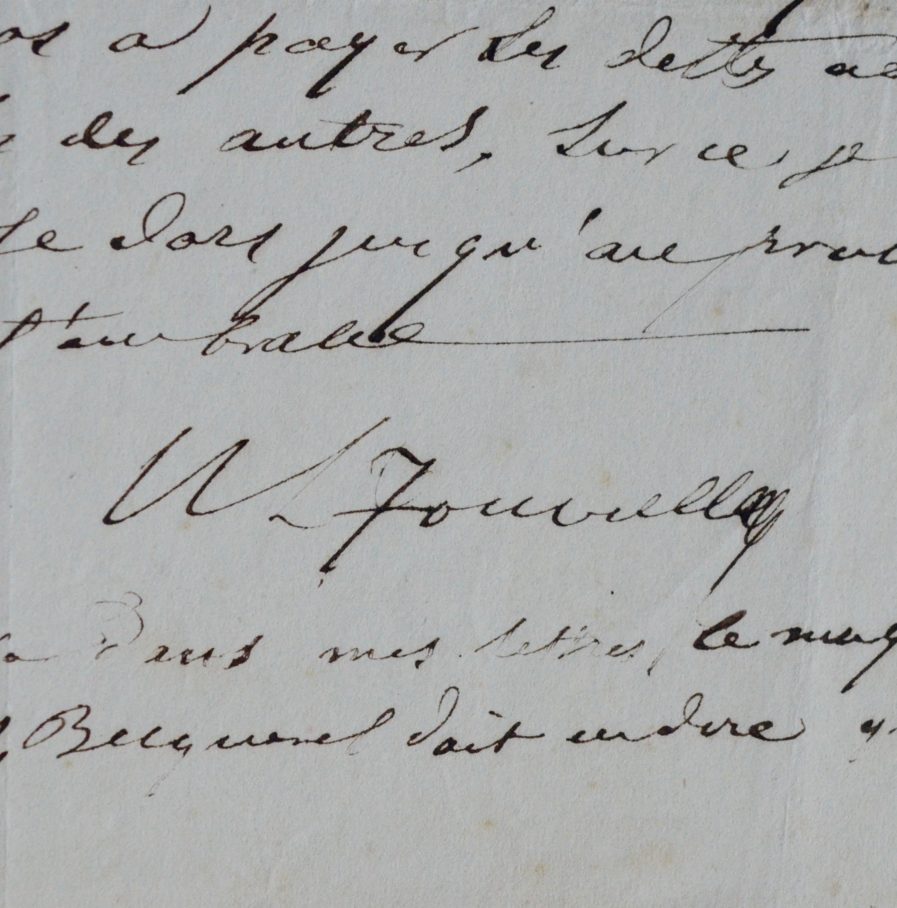 a payer les dettes
des autres, sur ce je
dors jusqu'au
t'embrasse
Fouvielle
Dans mes lettres, le
Becquerel doit en dire